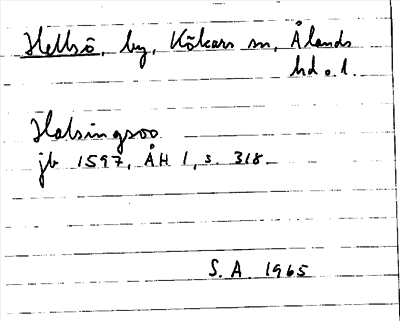 Hellsö, by, Kökars sn, Ålands
hd o. l.
Halsingsoo
jb 1597, ÅH 1, s. 318.
S. A. 1965